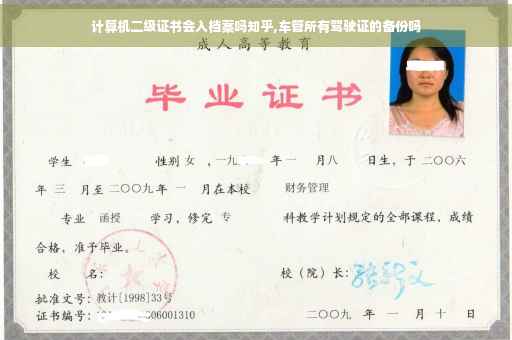 计算机二级证书会入档案吗知乎,车管所有驾驶证的备份吗
成人高等教育
毕业证书
学生 性别 女 ，一九 年 一 月 八 日生，于 二〇〇六
年 三 月至 二〇〇九 年 一 月在本校 财务管理
专业 函授 学习，修完 专 科教学计划规定的全部课程，成绩
合格，准予毕业。
校 名： 校（院）长：
批准文号：教计[1998]33号
证书编号： 06001310 二〇〇九 年 一 月 十 日